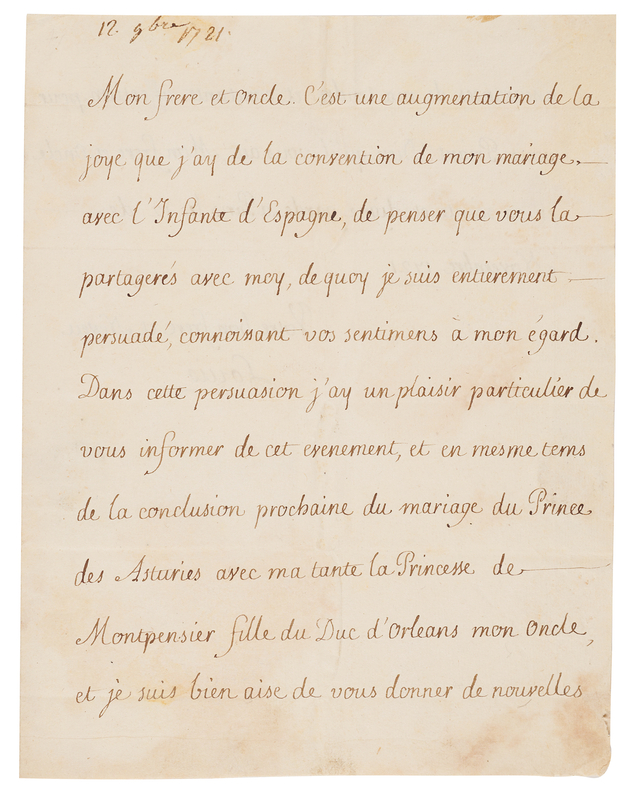 12. 9bre 1721.
Mon frere et oncle. C'est une augmentation de la
joye que j'ay de la convention de mon mariage,
avec l'Infante d'Espagne, de penser que vous la
partagerés avec moy, de quoy je suis entierement
persuadé, connoissant vos sentimens à mon égard.
Dans cette persuasion j'ay un plaisir particulier de
vous informer de cet evenement, et en mesme tems
de la conclusion prochaine du mariage du Prince
des Asturies avec ma tante la Princesse de
Montpensier fille du Duc d'Orleans mon Oncle,
et je suis bien aise de vous donner de nouvelles